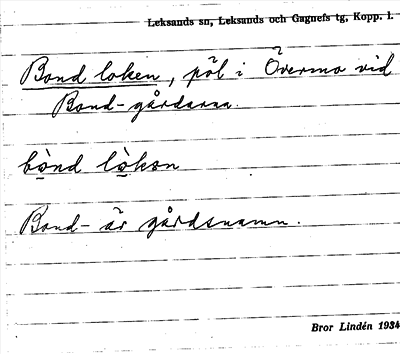 Leksands sn, Leksands och Gagnefs tg, Kopp. l.
Bond loken, pöl i Övermo vid
Bond-gårdarna.
bònd lòkən
Bond- är gårdsnamn.
Bror Lindén 1934